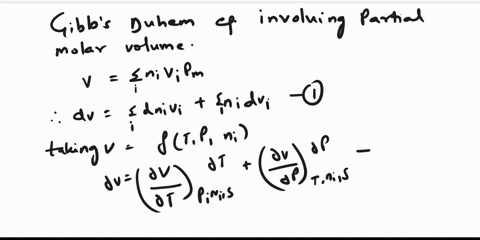 Gibb's Duhem eq involving Partial
molar volume.
V = Σ_i n_i V_i P_m
∴ dv = Σ_i dn_i v_i + Σ_i n_i dv_i —①
taking V = f(T, P, n_i)
dv = (∂V/∂T)_{P, n_i, S} dT + (∂V/∂P)_{T, n_i, S} dP —